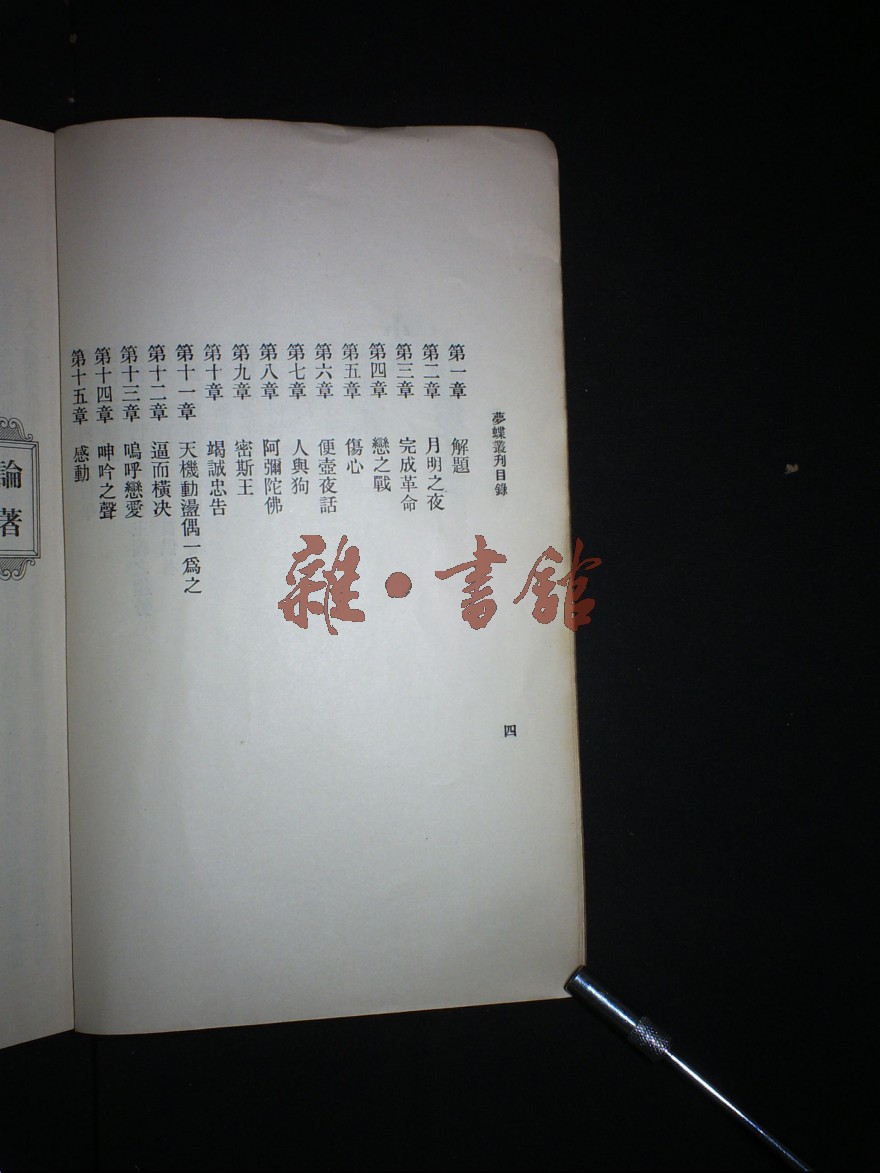 夢蝶叢刊目錄
第一章 解題
第二章 月明之夜
第三章 完成革命
第四章 戀之戰
第五章 傷心
第六章 便壺夜話
第七章 人與狗
第八章 阿彌陀佛
第九章 密斯王
第十章 竭誠忠告
第十一章 天機動盪偶一爲之
第十二章 逼而橫决
第十三章 嗚呼戀愛
第十四章 呻吟之聲
第十五章 感動
四
論著
雜·書館